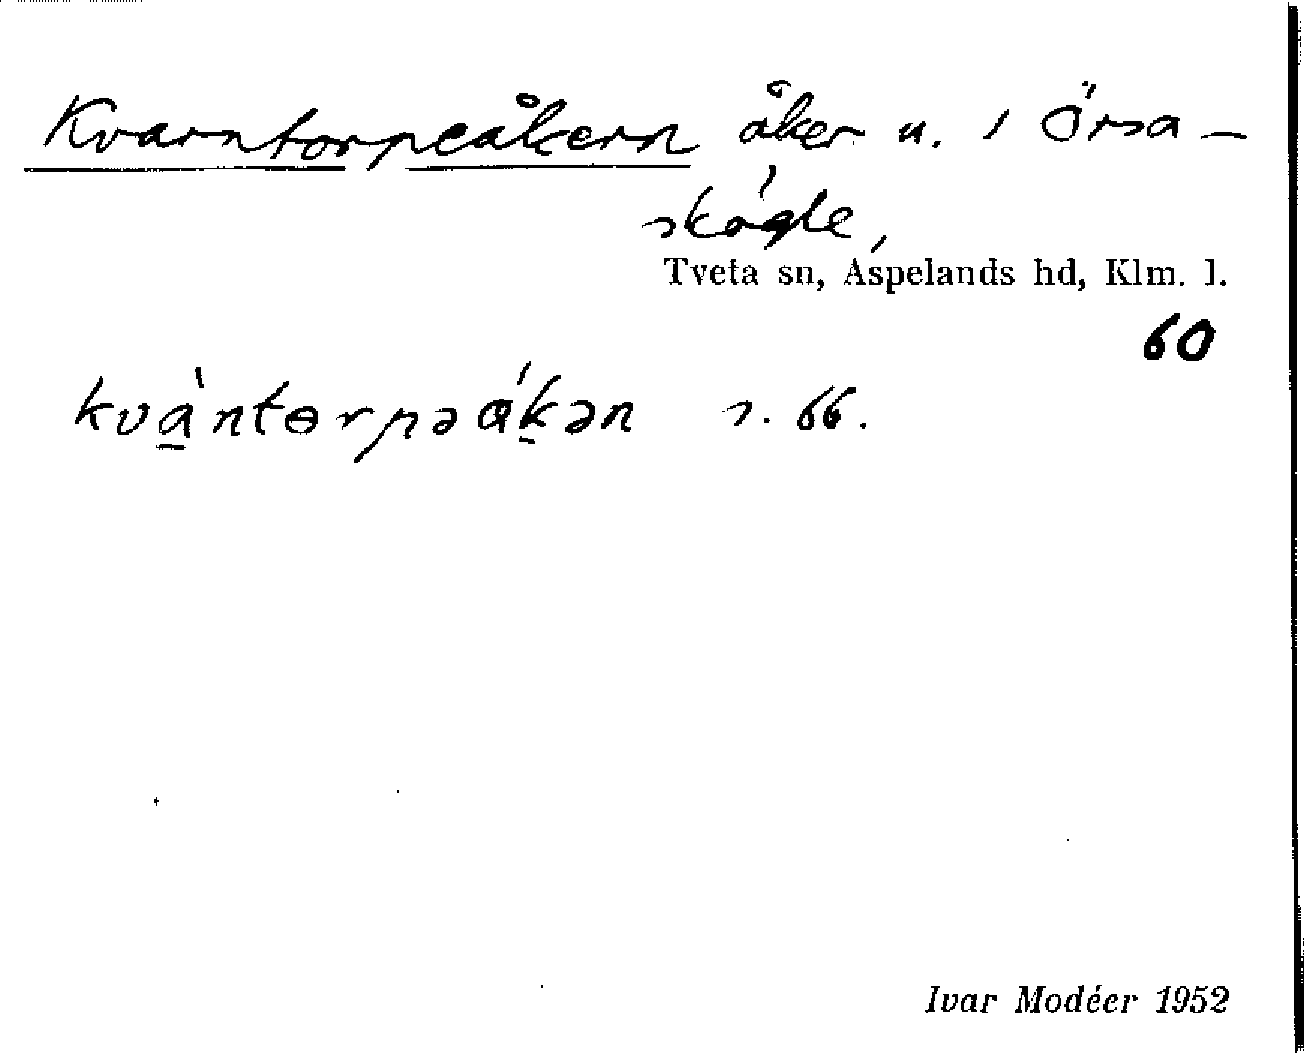 Kvarntorpeåkern åker u. 1 Örsa-
skögle,
Tveta sn, Aspelands hd, Klm. l.
60
kvàntɵrpəákən s. 66.
Ivar Modéer 1952